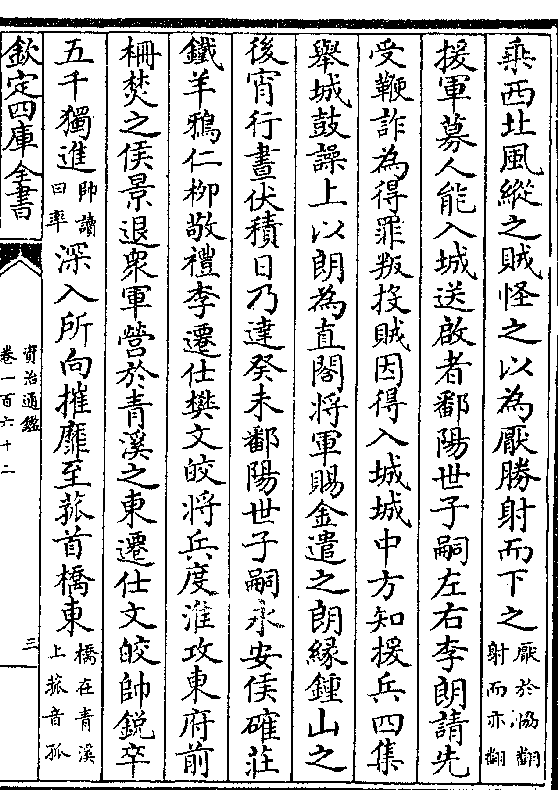 乗西北風縱之賊怪之以為厭勝射而下之厭於協翻射而亦翻
援軍募人能入城送啟者鄱陽世子嗣左右李朗請先
受鞭詐為得罪叛投賊因得入城城中方知援兵四集
舉城鼓譟上以朗為直閤將軍賜金遣之朗縁鍾山之
後宵行晝伏積日乃達癸未鄱陽世子嗣永安侯確莊
鐵羊鴉仁柳敬禮李遷仕樊文皎將兵度淮攻東府前
柵焚之侯景退衆軍營於青溪之東遷仕文皎帥銳卒
五千獨進帥讀曰率深入所向摧靡至菰首橋東橋在青溪上菰音孤
欽定四庫全書
資治通鑑
卷一百六十二
三